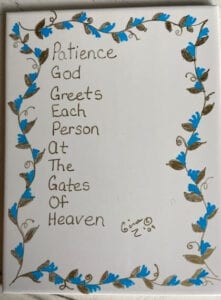 Patience
God
Greets
Each
Person
At
The
Gates
Of
Heaven
Gina ©